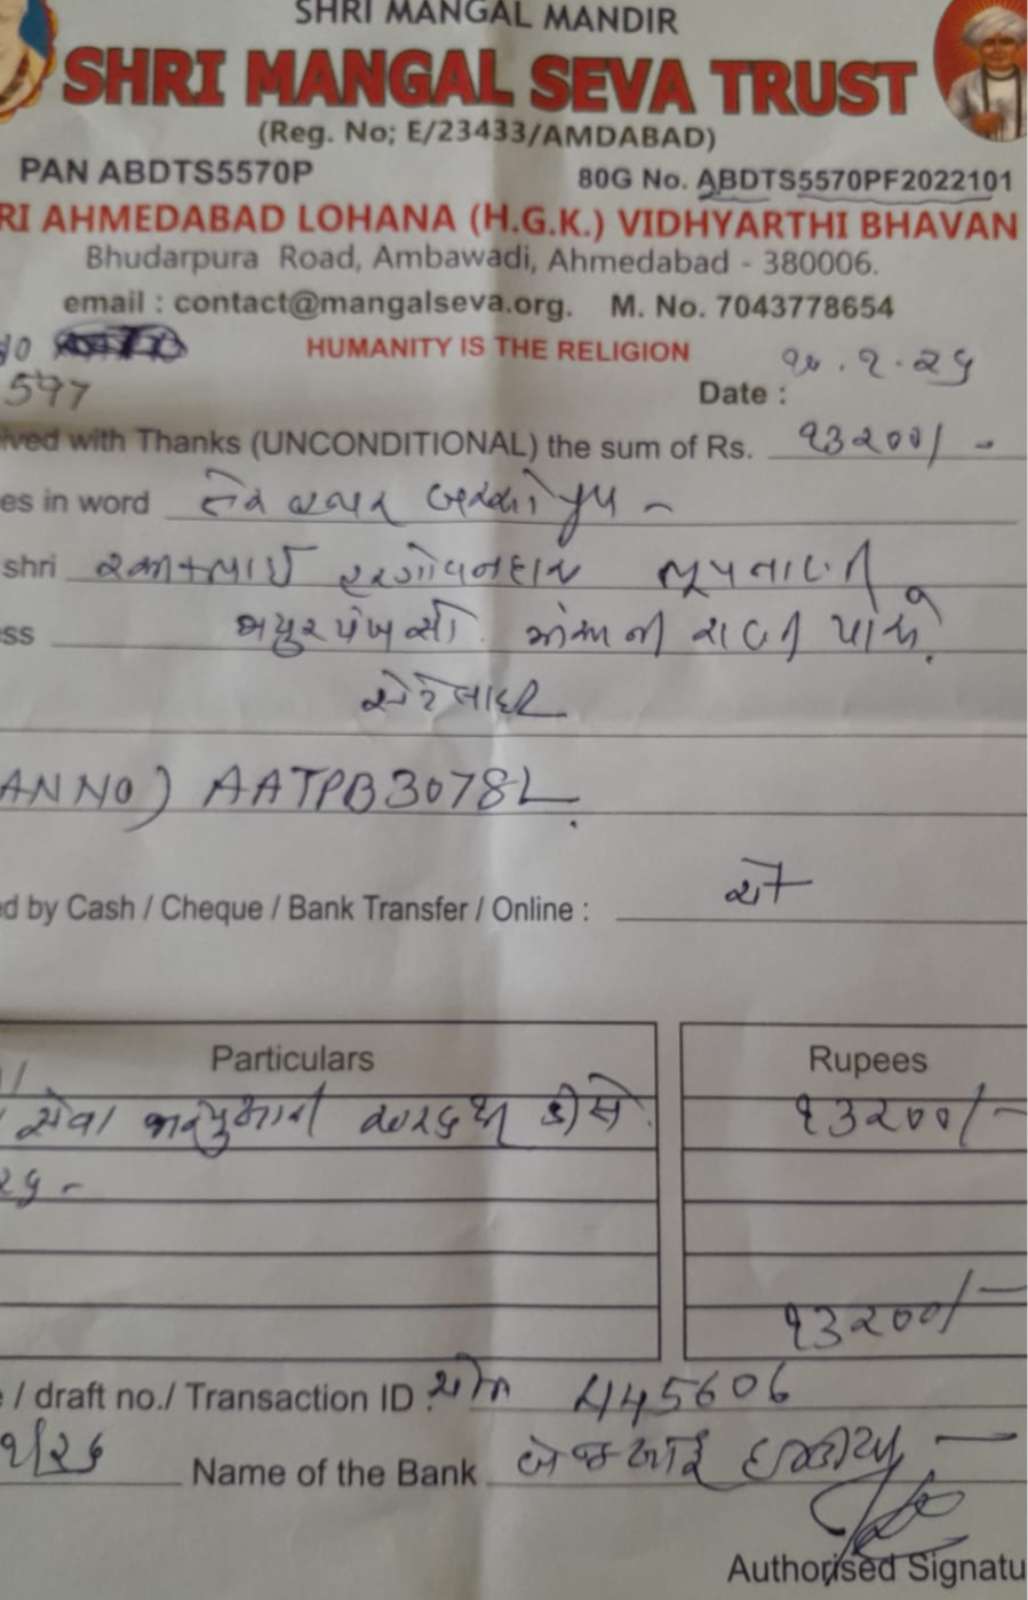 SHRI MANGAL MANDIR
SHRI MANGAL SEVA TRUST
(Reg. No; E/23433/AMDABAD)
PAN ABDTS5570P 80G No. ABDTS5570PF2022101
RI AHMEDABAD LOHANA (H.G.K.) VIDHYARTHI BHAVAN
Bhudarpura Road, Ambawadi, Ahmedabad - 380006.
email : contact@mangalseva.org. M. No. 7043778654
HUMANITY IS THE RELIGION
Date :
ived with Thanks (UNCONDITIONAL) the sum of Rs. ૧૩૨૦૦/-
es in word તેર હજાર બસ્સો પુરા
shri હરગોવનદાસ
ess મયુરપંખ સો. પાસે.
સેટેલાઈટ
AN NO) AATPB3078L
d by Cash / Cheque / Bank Transfer / Online : ચેક
Particulars Rupees
સેવા ૧૩૨૦૦/-
૧૩૨૦૦/-
/ draft no./ Transaction ID : ચેક 445606
Name of the Bank ઇન્ડીયા
Authorised Signatu